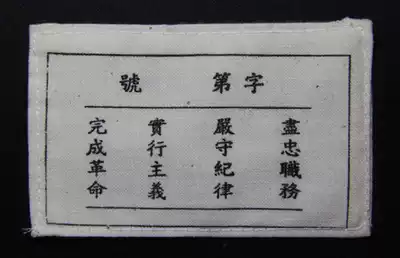 字第號
盡忠職務
嚴守紀律
實行主義
完成革命